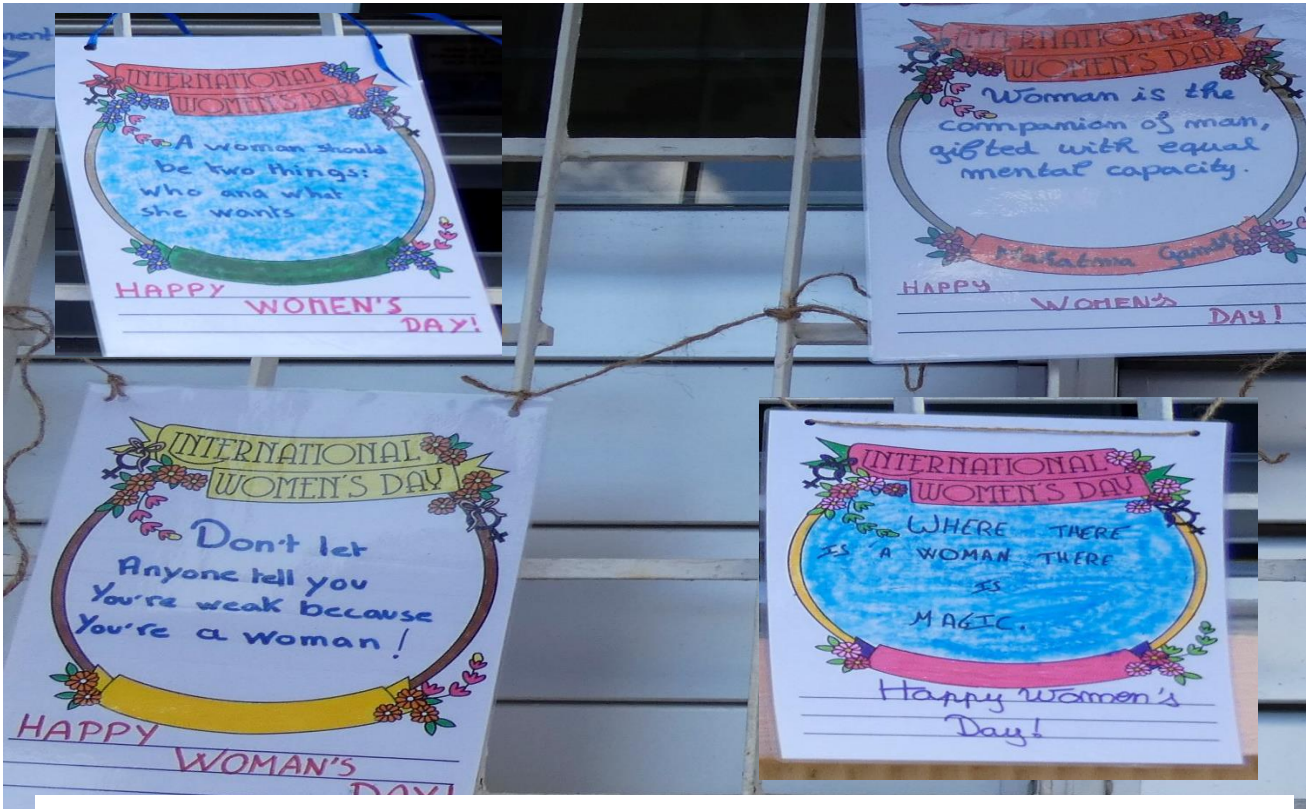 ment
INTERNATIONAL
WOMEN'S DAY
A woman should
be two things:
who and what
she wants
HAPPY
WOMEN'S
DAY!
INTERNATIONAL
WOMEN'S DAY
Woman is the
companion of man,
gifted with equal
mental capacity.
Mahatma Gandhi
HAPPY
WOMEN'S
DAY!
INTERNATIONAL
WOMEN'S DAY
Don't let
Anyone tell you
You're weak because
You're a woman!
HAPPY
WOMAN'S
DAY!
INTERNATIONAL
WOMEN'S DAY
WHERE THERE
IS A WOMAN THERE
IS
MAGIC.
Happy Women's
Day!